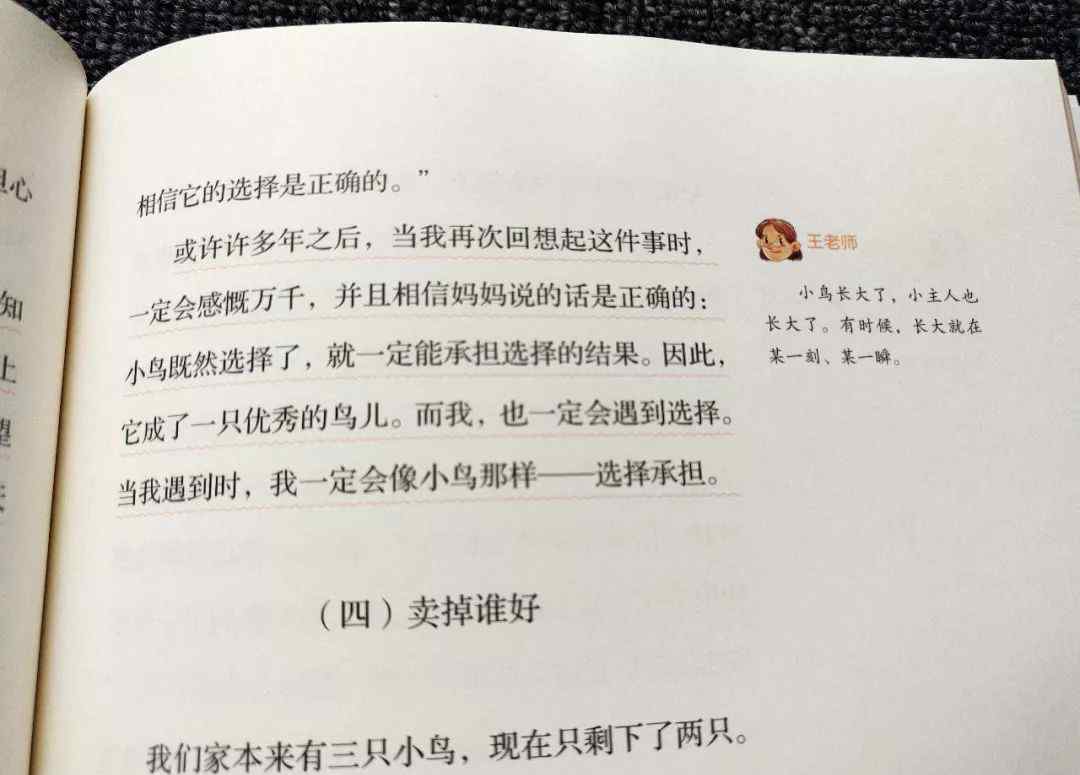 相信它的选择是正确的。”
或许许多年之后，当我再次回想起这件事时，
一定会感慨万千，并且相信妈妈说的话是正确的：
小鸟既然选择了，就一定能承担选择的结果。因此，
它成了一只优秀的鸟儿。而我，也一定会遇到选择。
当我遇到时，我一定会像小鸟那样——选择承担。
（四）卖掉谁好
我们家本来有三只小鸟，现在只剩下了两只。
王老师
小鸟长大了，小主人也
长大了。有时候，长大就在
某一刻、某一瞬。
心
知
上